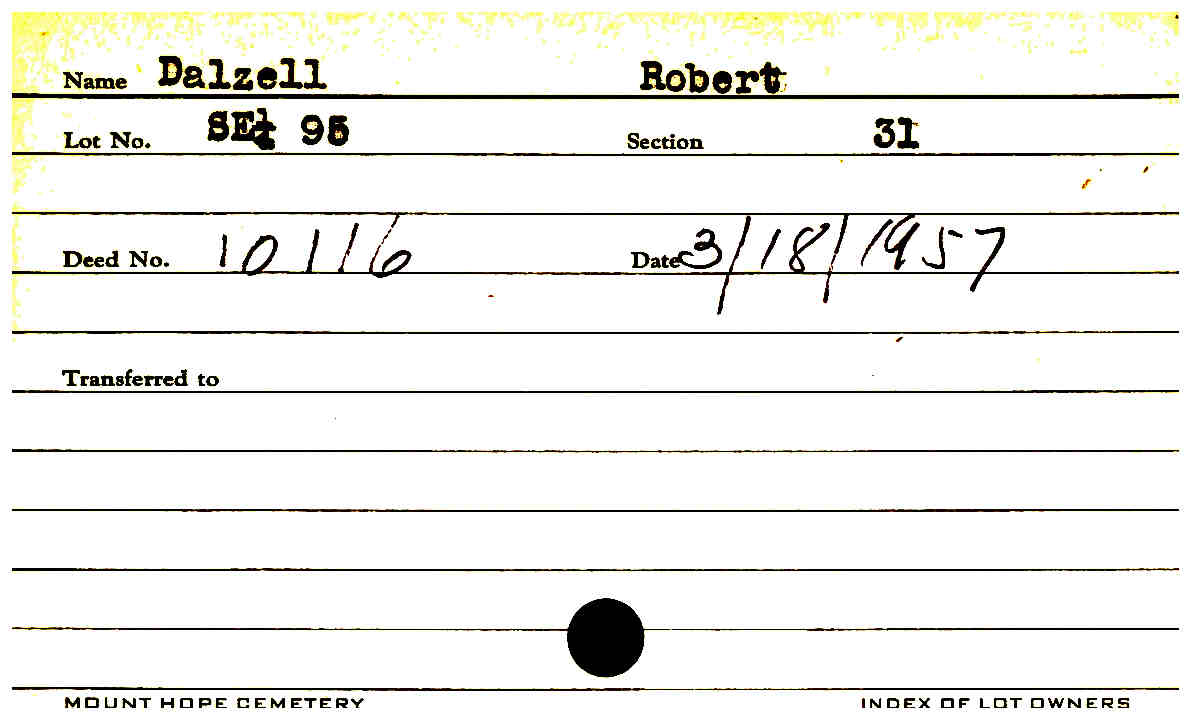 Name Dalzell Robert
Lot No. SE¼ 95 Section 31
Deed No. 10116 Date 3/18/1957
Transferred to
MOUNT HOPE CEMETERY INDEX OF LOT OWNERS